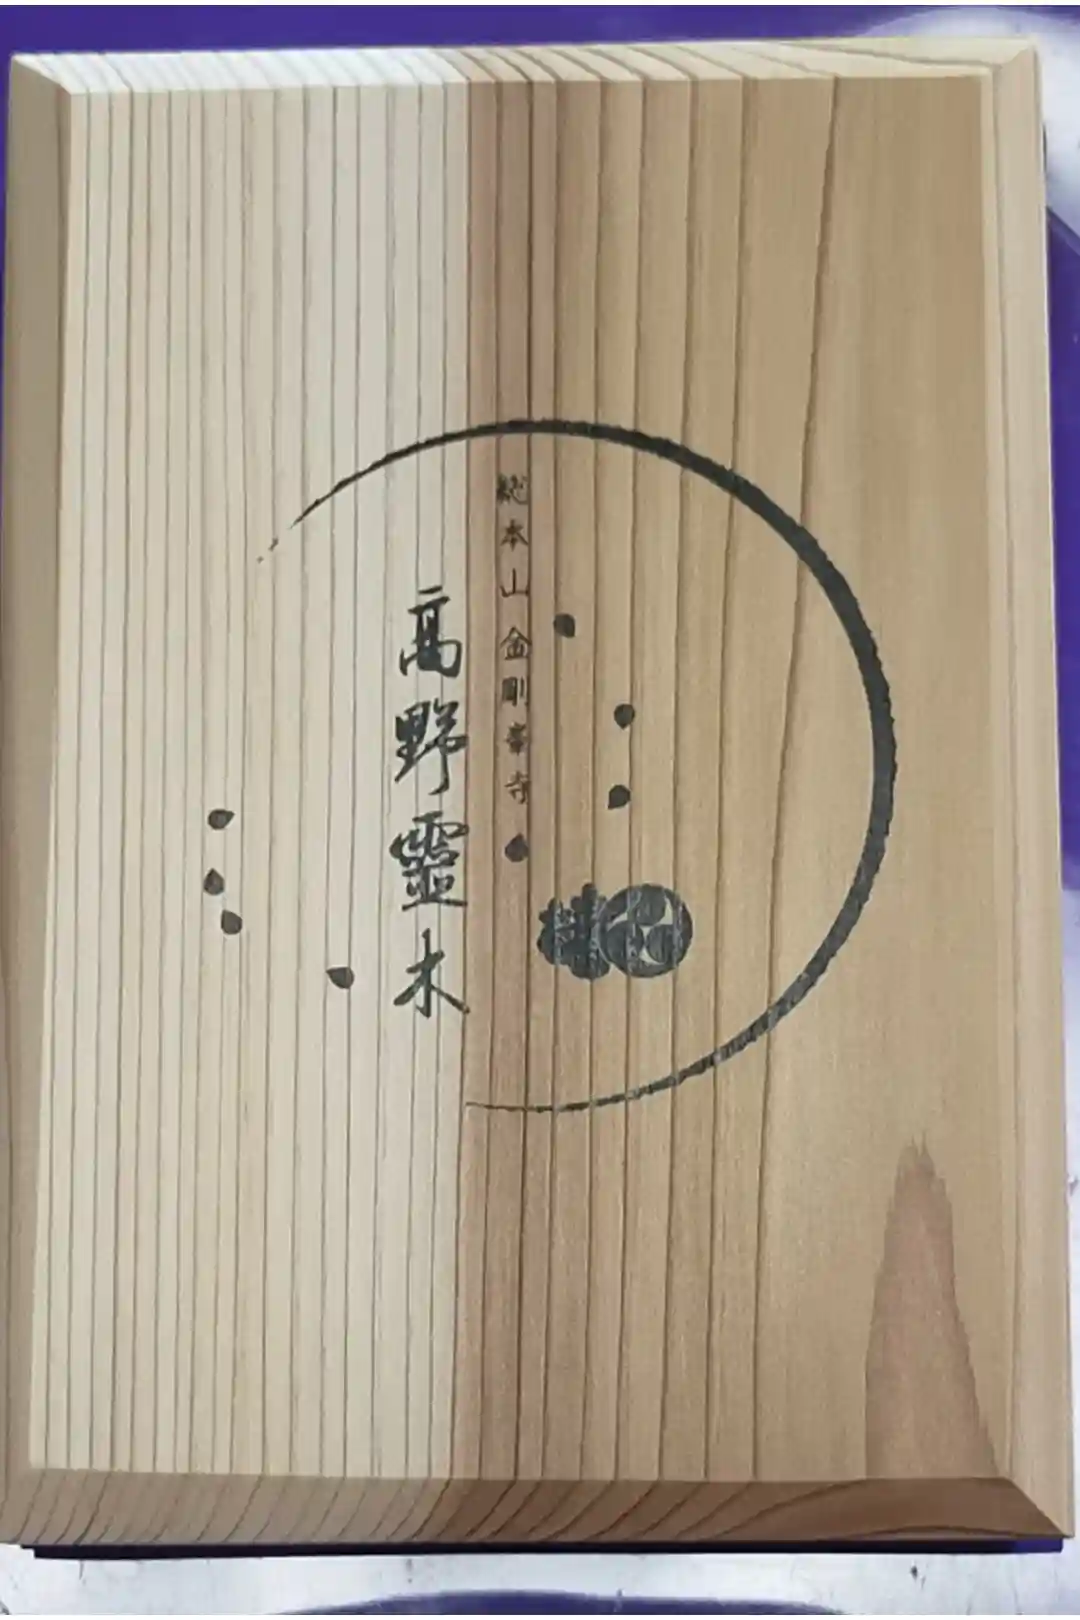 総本山金剛峯寺
高野靈木